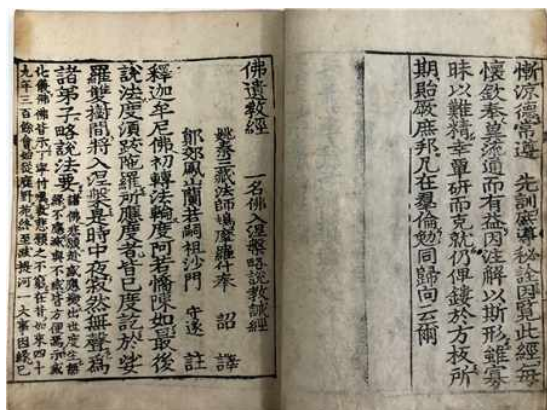 慚涼德常遵　先訓廠導秘詮因覽此經每
懷欽奉莫流通而有益因注解以斯形雖寡
昧以難精幸單研而克就仍俾鏤於方板所
期貽厥庶邦凡在羣倫勉同歸向云爾
佛遺教經　一名佛入涅槃略說教誡經
姚秦三藏法師鳩摩羅什奉　詔譯
鄮郊鳳山蘭若嗣祖沙門　守遂　註
釋迦牟尼佛初轉法輪度阿若憍陳如最後
說法度須跋陀羅所應度者皆已度訖於娑
羅雙樹間將入涅槃是時中夜寂然無聲為
諸弟子略說法要